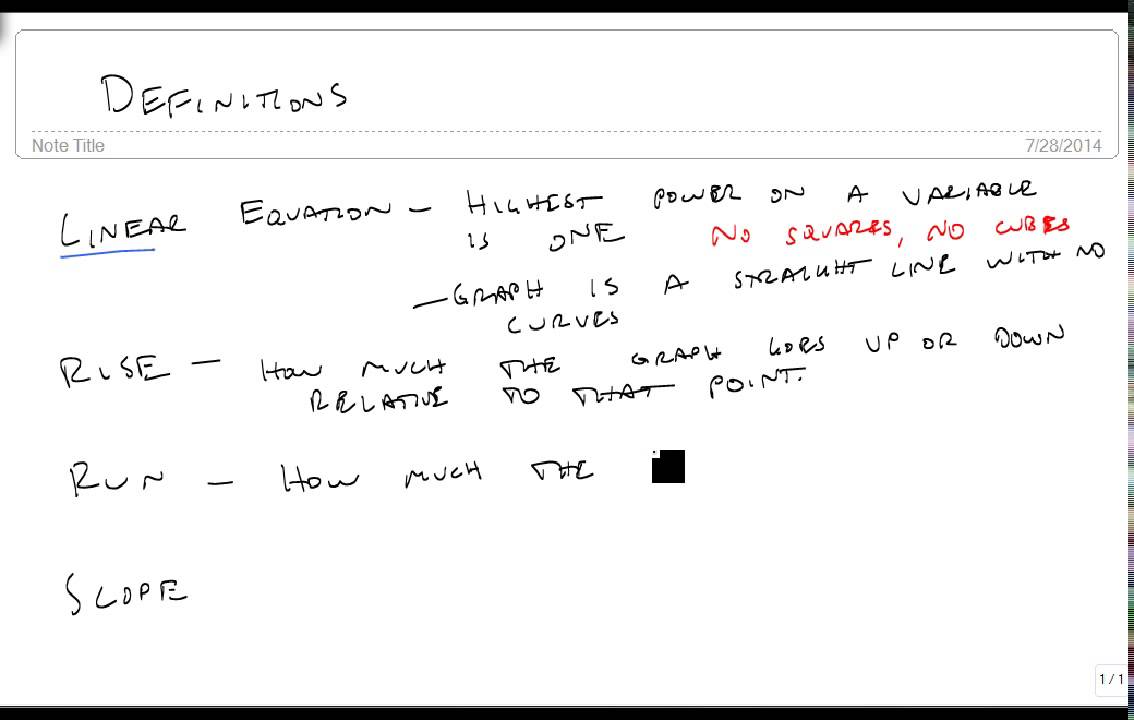 DEFINITIONS
Note Title
7/28/2014
LINEAR EQUATION - HIGHEST POWER ON A VARIABLE
IS ONE NO SQUARES, NO CUBES
- GRAPH IS A STRAIGHT LINE WITH NO
CURVES
RISE - HOW MUCH THE GRAPH GOES UP OR DOWN
RELATIVE TO THAT POINT.
RUN - HOW MUCH THE
SLOPE
1 / 1